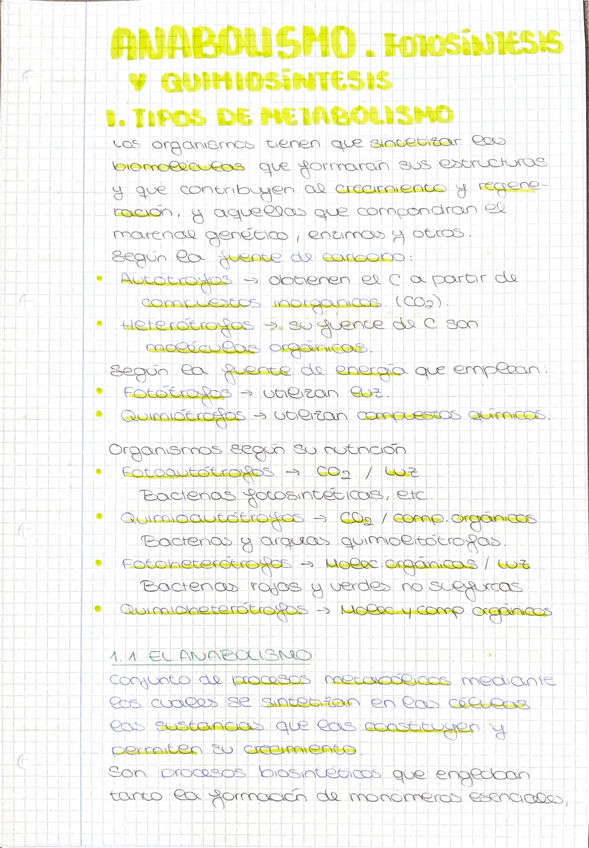 ANABOLISMO. FOTOSÍNTESIS
Y QUIMIOSÍNTESIS
1. TIPOS DE METABOLISMO
Los organismos tienen que sintetizar las
biomoléculas que formarán sus estructuras
y que contribuyen al crecimiento y regene-
ración, y aquellas que compondrán el
material genético, enzimas y otros.
Según la fuente de carbono:
• Autótrofos → obtienen el C a partir de
compuestos inorgánicos (CO2).
• Heterótrofos → su fuente de C son
moléculas orgánicas.
Según la fuente de energía que emplean:
• Fotótrofos → utilizan luz.
• Quimiótrofos → utilizan compuestos químicos.
Organismos según su nutrición
• Fotoautótrofos → CO2 / luz
Bacterias fotosintéticas, etc.
• Quimioautótrofos → CO2 / comp. orgánicos
Bacterias y arqueas quimiolitótrofas.
• Fotoheterótrofos → Molec. orgánicas / luz
Bacterias rojas y verdes no sulfurcas
• Quimioheterótrofos → Molec y comp orgánicos
1.1 EL ANABOLISMO
Conjunto de procesos metabólicos mediante
los cuales se sintetizan en las células
las sustancias que las constituyen y
permiten su crecimiento.
Son procesos biosintéticos que engloban
tanto la formación de monómeros esenciales,